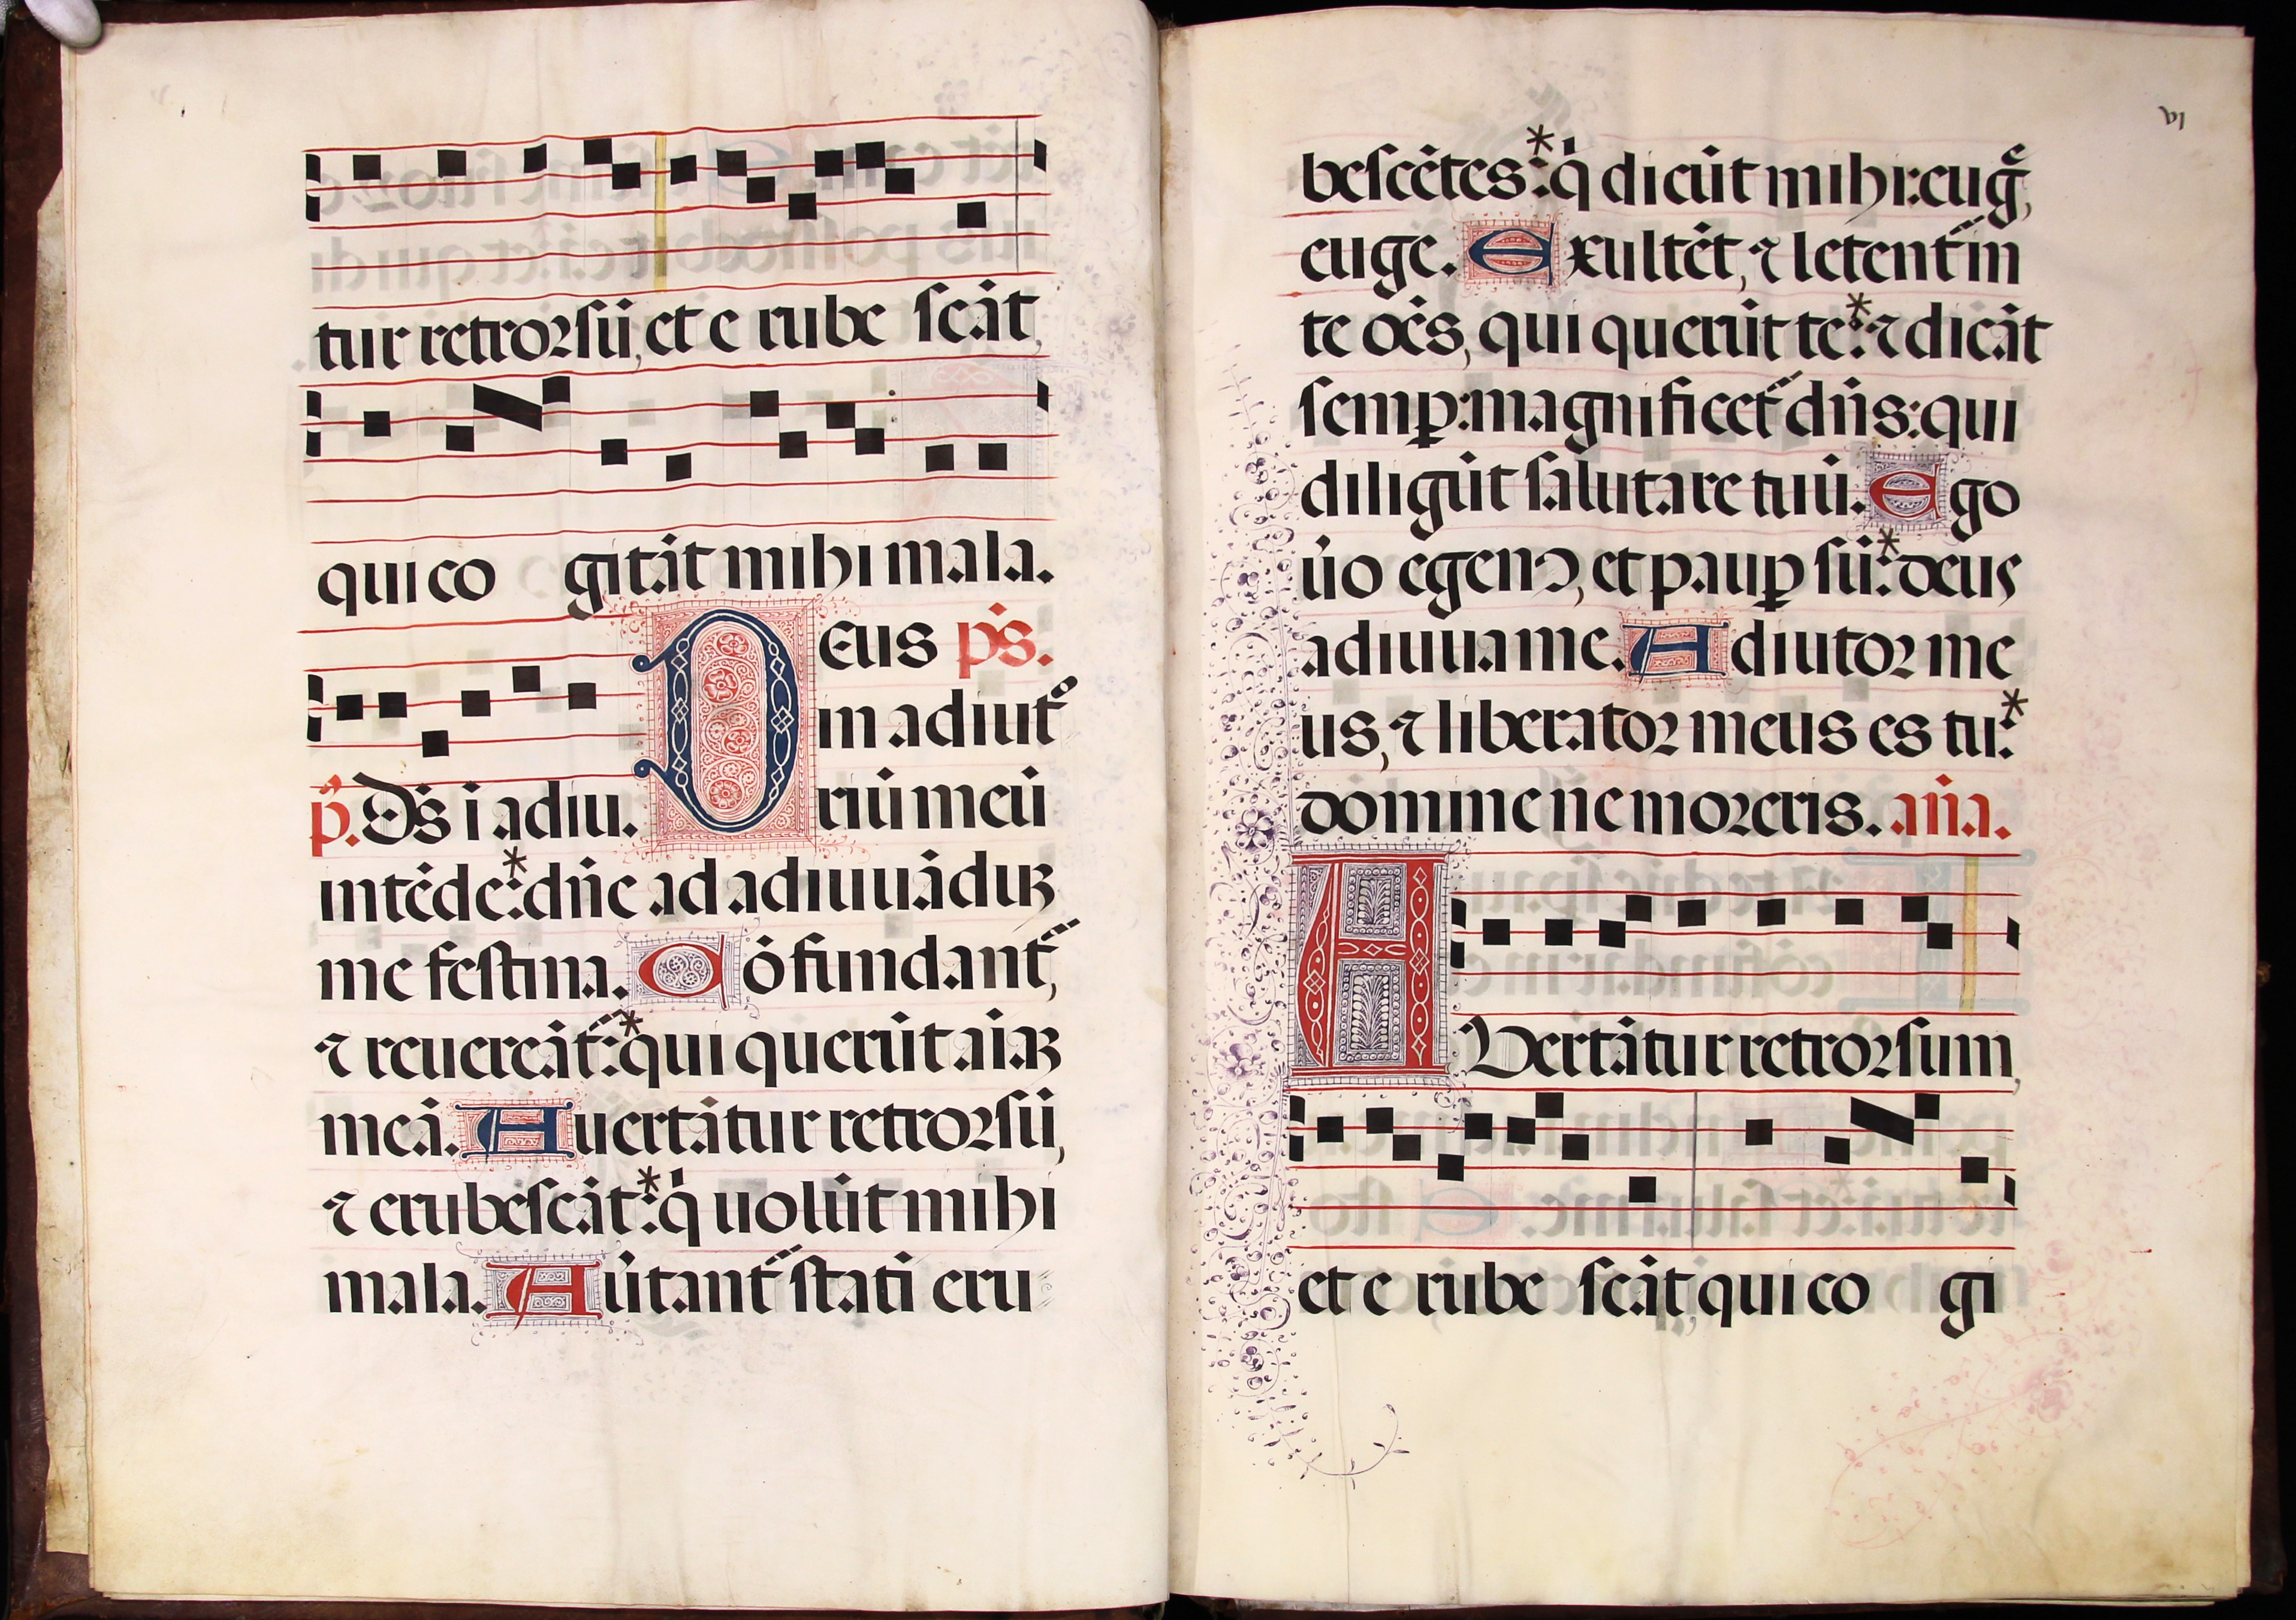 tur retrorsū, et e rube scāt,
qui co gitāt mihi mala.
Deus ps̄.
in adiutᵒ
p̄. Ds̄ ī adiu. riū meū
intēde:* dn̄e ad adiuuādūꝫ
me festina. Cōfundant᷑,
⁊ reuereāt᷑:* qui querūt aīaꝫ
meā. Auertātur retrorsū,
⁊ erubescāt:* q̇ uolūt mihi
mala. Au̇tant᷑ statī eru
vi
bescētes:* q̇ dicūt mihi: euḡ,
euge. Exultēt, ⁊ letent᷑ in
te oēs, qui querūt te:* ⁊ dicāt
semꝑ: magnificet᷑ dn̄s: qui
diligūt salutare tuū. Ego
u̇o egenꝰ, et pauꝑ sū:* deus
adiuua me. Adiutor me
us, ⁊ liberator meus es tu:*
domine ne moreris. an̄a.
AVertātur retrorsum,
et e rube scāt, qui co gi